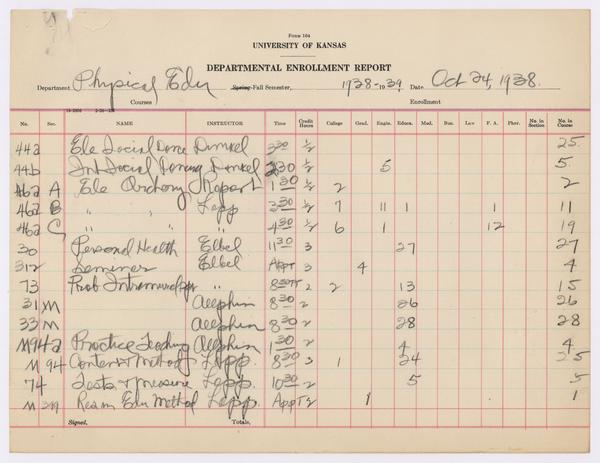 Form 104
UNIVERSITY OF KANSAS
DEPARTMENTAL ENROLLMENT REPORT
Department Physical Edu Spring-Fall Semester, 1938-1939 Date Oct 24, 1938.
Courses Enrollment
No. Sec. NAME INSTRUCTOR Time Credit Hours College Grad. Engin. Educa. Med. Bus. Law F. A. Phar. No. in Section No. in Course
44a Ele Social Dance Dunkel 3 30 ½ 25
44b Int Social Dancing Dunkel 2 30 ½ 5 5
46a A Ele Archery 1 30 ½ 2 2
46a B " " Lapp 3 30 ½ 7 11 1 1 11
46a C " " " 4 30 ½ 6 1 12 19
30 Personal Health Elbel 11 30 3 27 27
312 Seminar Elbel Appt 3 4 4
73 Prob Intramural " 8 30 2 2 13 15
31 M Allphin 8 30 2 26 26
33 M Allphin 8 30 2 28 28
M94a Practice Teaching Allphin 1 30 2 4 4
M 94 Content & Method Lapp. 8 30 3 1 24 25
74 Tests & measure Lapp. 10 30 2 5 5
M 399 Res in Edu Method Lapp. Appt 2 1 1
Signed, Totals,